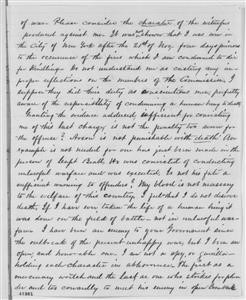 of war. Please consider the character of the witnesses
produced against me. It was shown that I was not in
the City of New York after the 21st of Nov. four days previous
to the occurrence of the fires which I am condemned to die
for kindling. Do not understand me as casting any im-
proper reflections on the members of the Commission, I
suppose they did their duty as conscientious men properly
aware of the responsibility of condemning a human being to death
Granting the evidence adduced sufficient for convicting
me of this last charge is not the penalty too severe for
the offense? Arson is not punishable with death. An
example is not needed for one has just been made in the
person of Capt Beall. He was convicted of conducting
unlawful warfare and was executed. Is not his fate a
sufficient warning to offenders? My blood is not necessary
to the welfare of this country. But I do not deserve
death. If I have ever taken the life of a human being it
was done on the field of battle - not in unlawful war-
fare. I have been an enemy to your Government since
the outbreak of the present unhappy war but I have been an
open and honorable one. I am not a spy, or guerilla -
holding each character in abhorrence. The first as a
mercenary wretch and the last as one who strikes for plun-
der and too cowardly to meet his enemy in open
41981